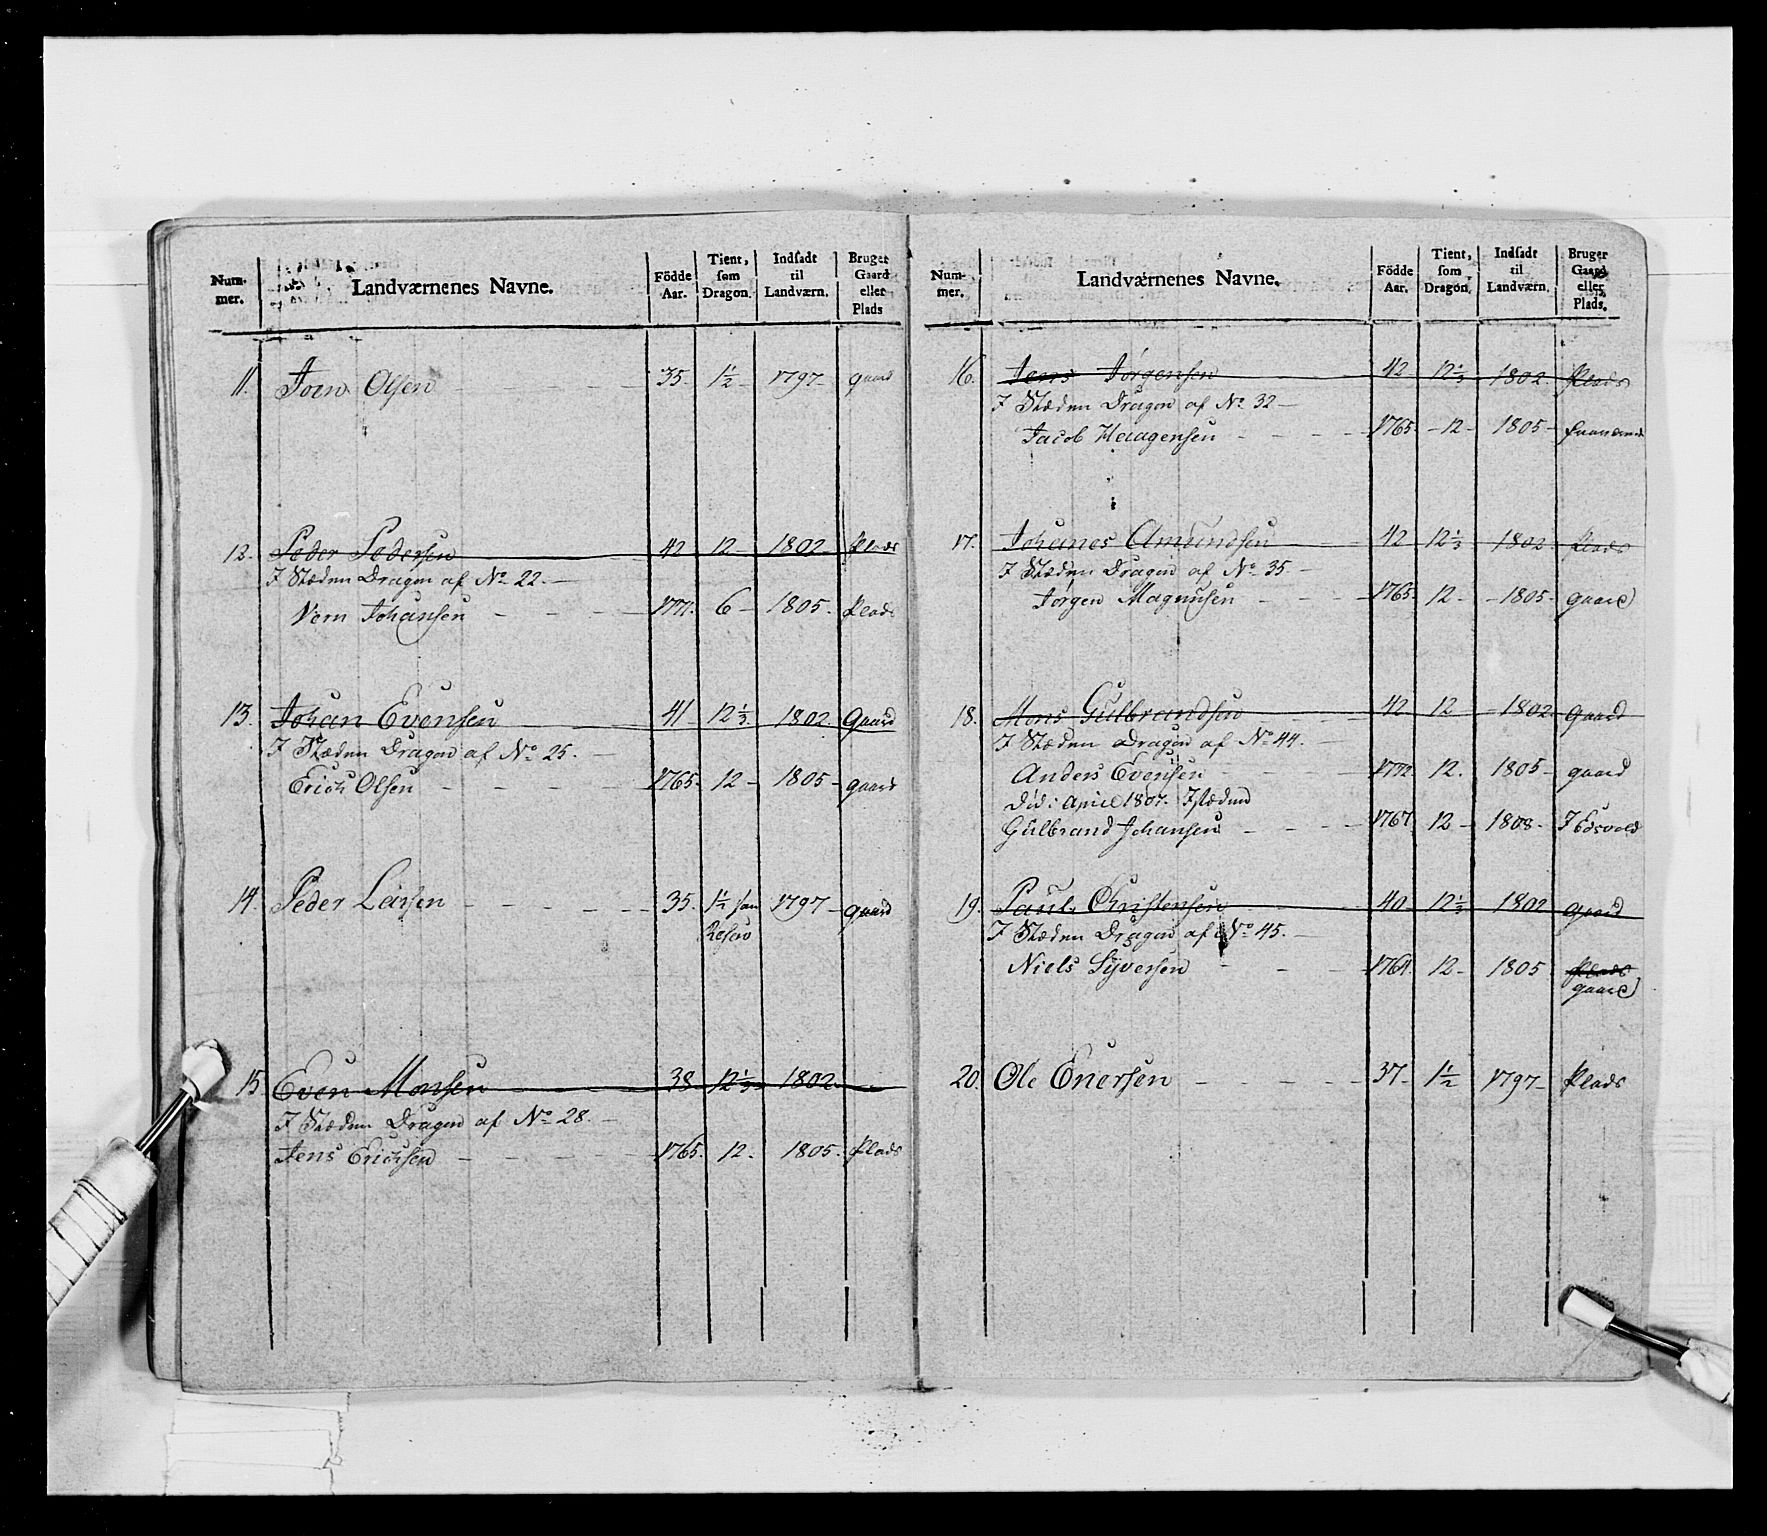 Num-
mer.
Landværnenes Navne.
Födde
Aar.
Tient,
som
Dragon.
Indsadt
til
Landværn.
Bruger
Gaard
eller
Plads
11. Olsen 35. 1½ 1797 gaard
12. Peder Pedersen 42 12 1802 Plads
I Stæden Dragon af No 22.
Johansen 1771. 6 1805. Plads
13. Johan Evensen 41 12⅓ 1802 Gaard
I Stæden Dragon af No 25.
Erich Olsen 1765. 12 1805 gaard
14. Peder Larsen 35. 1½ 1797 gaard
15. Even Monsen 38 12⅓ 1802
I Stæden Dragon af No 28.
Jens Erichsen 1765. 12. 1805. Plads
Num-
mer.
Landværnenes Navne.
Födde
Aar.
Tient,
som
Dragon.
Indsadt
til
Landværn.
Bruger
Gaard
eller
Plads.
16. Jens Jørgensen 42 12⅓ 1802. Plads
I Stæden Dragon af No 32
Jacob 1765 12 1805
17. Johanes Amundsen 42 12⅓ 1802 Plads
I Stæden Dragon af No 35
Jørgen Magnusen 1765. 12. 1805. gaard
18. Mons Gulbrandsen 42 12 1802. gaard
I Stæden Dragon af No 44.
Anders Evensen 1772 12. 1805 gaard
Død: April 1807. Istæden
Gulbrand Johansen 1767 12 1808 I Edsvold
19. Paul Christensen 40 12⅓ 1802 gaard
I Stæden Dragon af No 45.
Niels Syversen 1764. 12 1805 Plads
gaard
20. Ole Enersen 37 1½ 1797 Plads